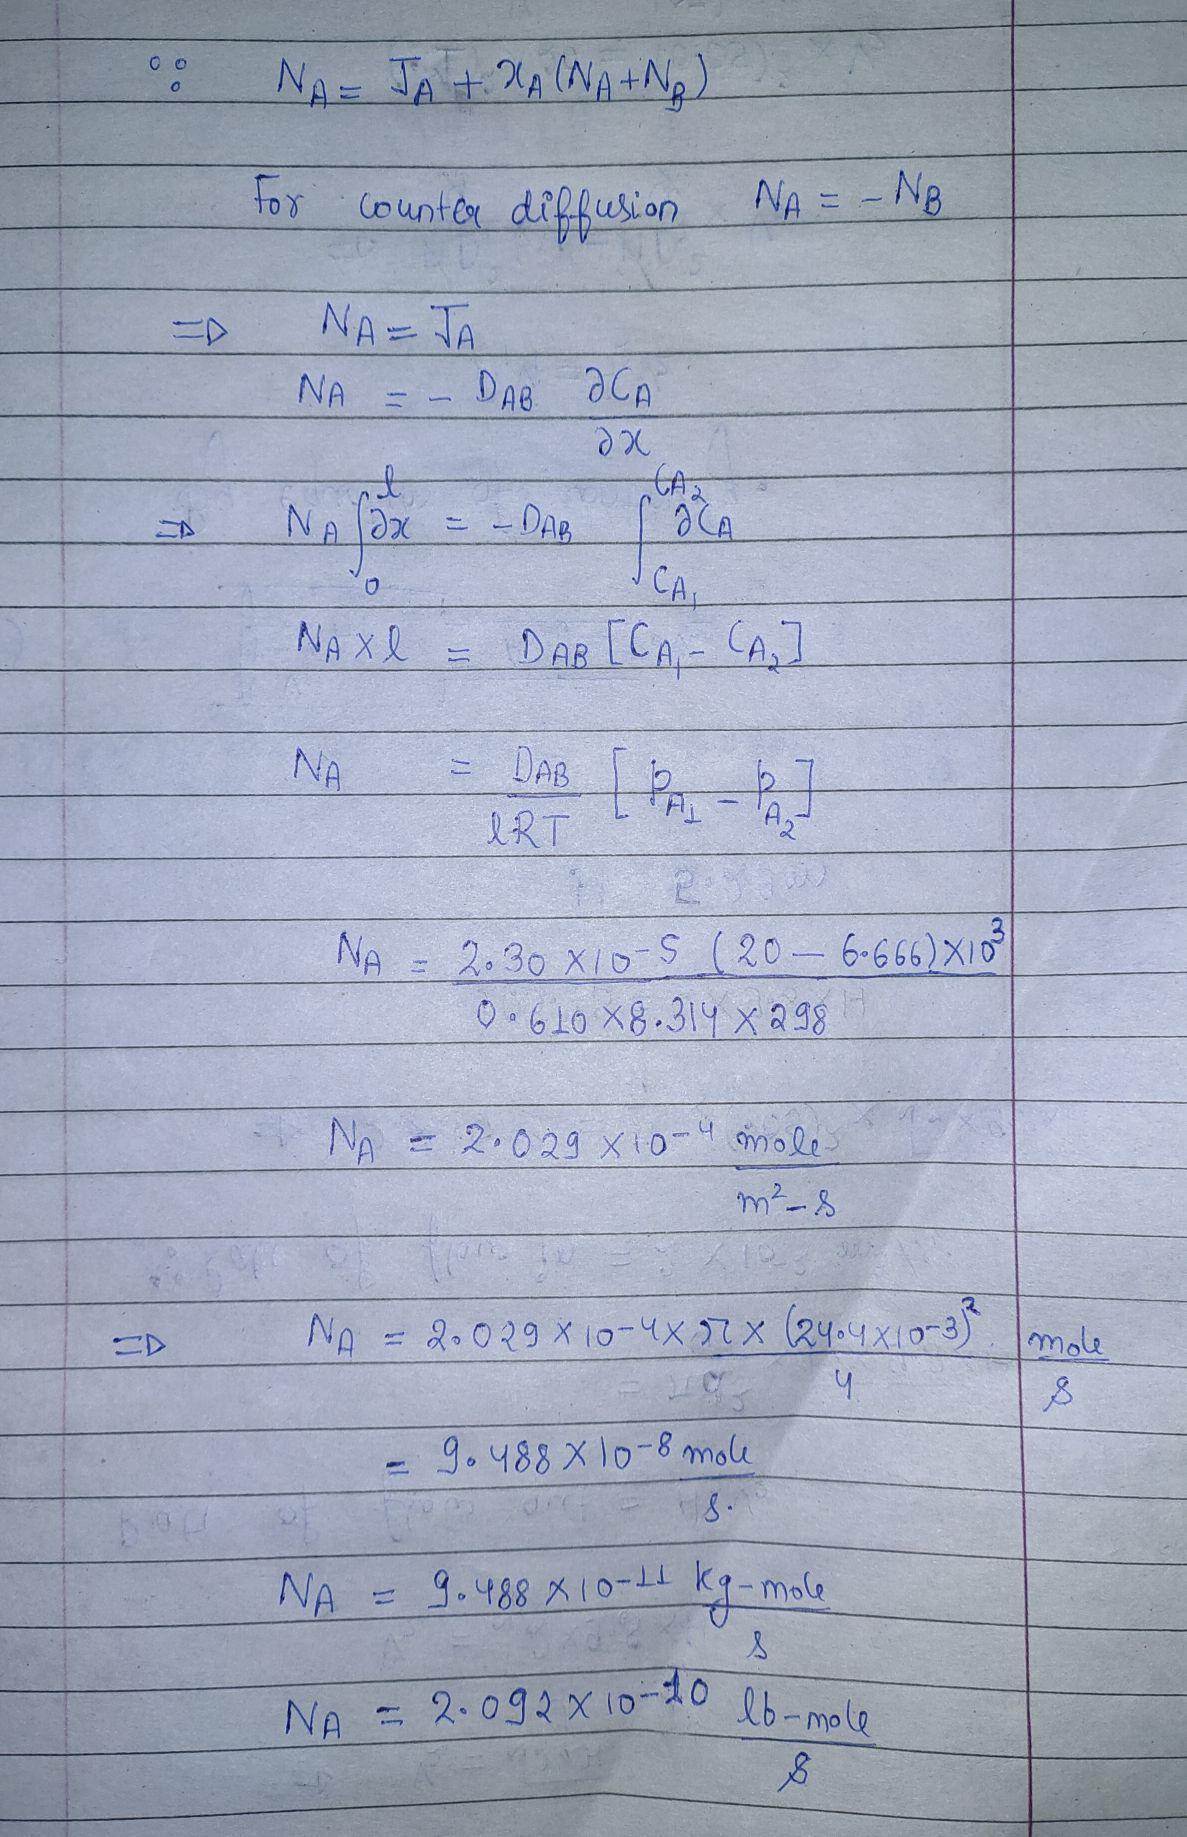 ∵ N_A = J_A + x_A (N_A + N_B)
For counter diffusion N_A = - N_B
⇒ N_A = J_A
N_A = - D_AB ∂C_A / ∂x
⇒ N_A ∫_0^l ∂x = - D_AB ∫_{C_A1}^{C_A2} ∂C_A
N_A × l = D_AB [C_A1 - C_A2]
N_A = D_AB / lRT [p_A1 - p_A2]
N_A = 2.30 × 10^-5 (20 - 6.666) × 10^3 / 0.610 × 8.314 × 298
N_A = 2.029 × 10^-4 mole / m^2-s
⇒ N_A = 2.029 × 10^-4 × π × (24.4 × 10^-3)^2 / 4 mole / s
= 9.488 × 10^-8 mole / s.
N_A = 9.488 × 10^-11 kg-mole / s
N_A = 2.092 × 10^-10 lb-mole / s